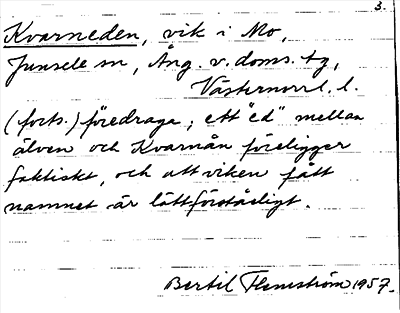 3.
Kvarneden, vik i Mo,
Junsele sn, Ång. v. doms. tg,
Västernorrl. l.
(forts.) föredraga; ett "ed" mellan
älven och Kvarnån föreligger
faktiskt, och att viken fått
namnet är lättförståeligt.
Bertil Flemström 1957.